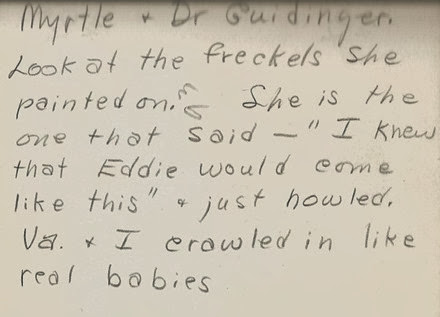 Myrtle + Dr Guidinger.
Look at the freckels she
painted on. She is the
one that said — "I knew
that Eddie would come
like this" + just howled.
Va. + I crawled in like
real babies